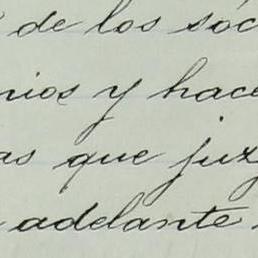 de los soc
nios y hace
as que juz
adelante